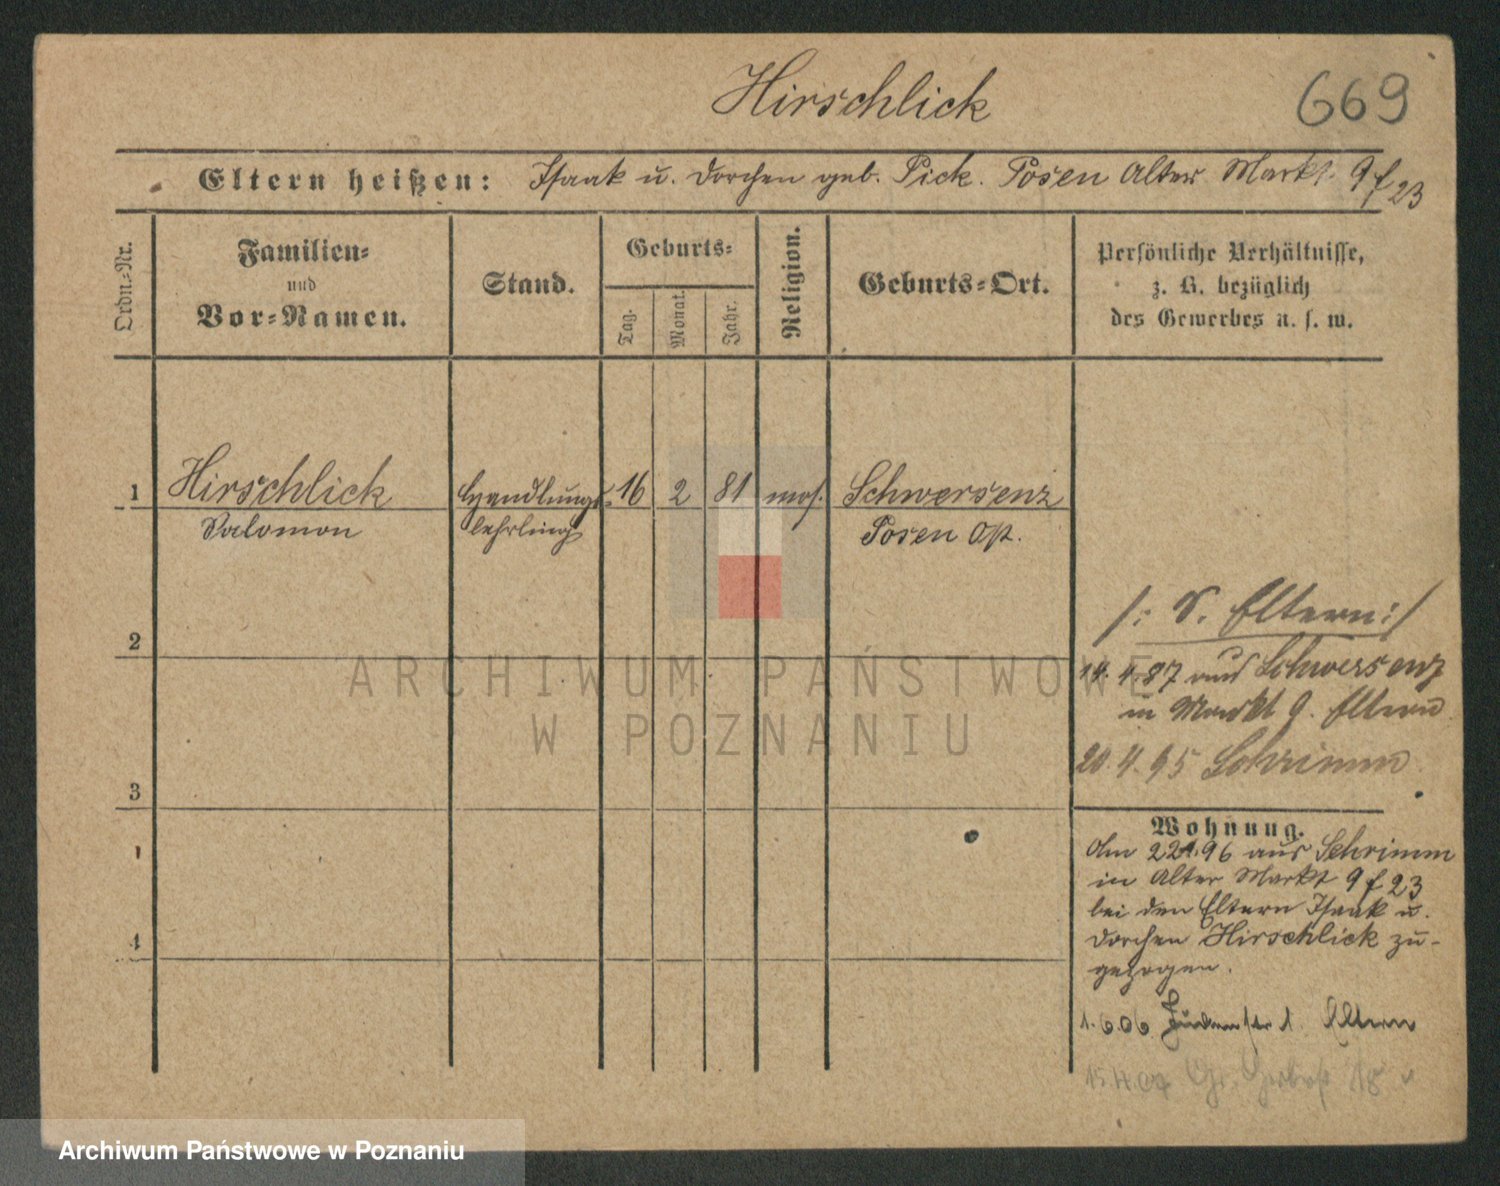 Hirschlick
669
Eltern heißen: Isaak u. Dorchen geb. Pick. Posen Alter Markt 9 f 23
Ordn.-Nr.
Familien-
und
Vor-Namen.
Stand.
Geburts-
Tag.
Monat.
Jahr.
Religion.
Geburts-Ort.
Persönliche Verhältnisse,
z. B. bezüglich
des Gewerbes u. s. w.
1 Hirschlick Handlungs- 16 2 81 mos. Schwersenz
Salomon lehrling Posen Ost.
2
/: S. Eltern :/
14. 4. 87 aus Schwersenz
in Markt 9. Eltern
20. 4. 95 Schrimm
3
Wohnung.
Am 22 96 aus Schrimm
in Alter Markt 9 f 23
bei den Eltern Isaak u.
Dorchen Hirschlick zu-
gezogen.
4
1. 6 06 Judenstr 1. Eltern
15.4.07 Gr. Gerberstr 18
ARCHIWUM PAŃSTWOWE
W POZNANIU
Archiwum Państwowe w Poznaniu